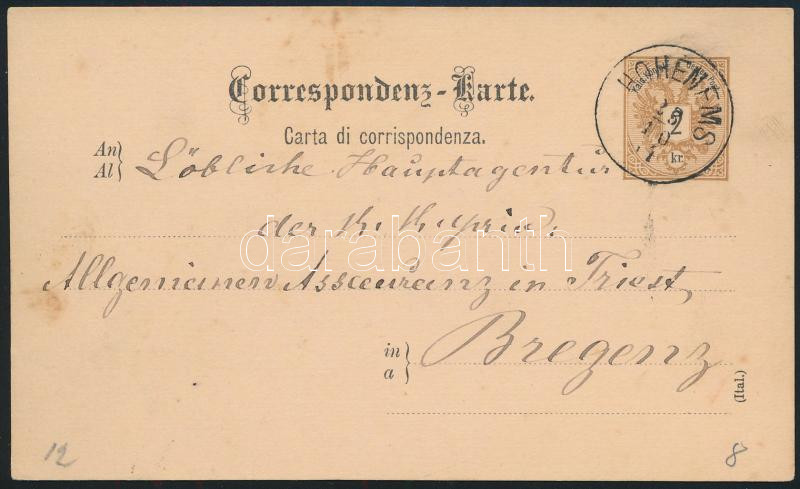 Correspondenz-Karte.
Carta di corrispondenza.
HOHENEMS
2
kr.
An
Al
Löbliche Hauptagentur
der k. k. priv.
Allgemeinen Assecuranz in Triest,
in
a
Bregenz
(Ital.)
darabanth
12
8